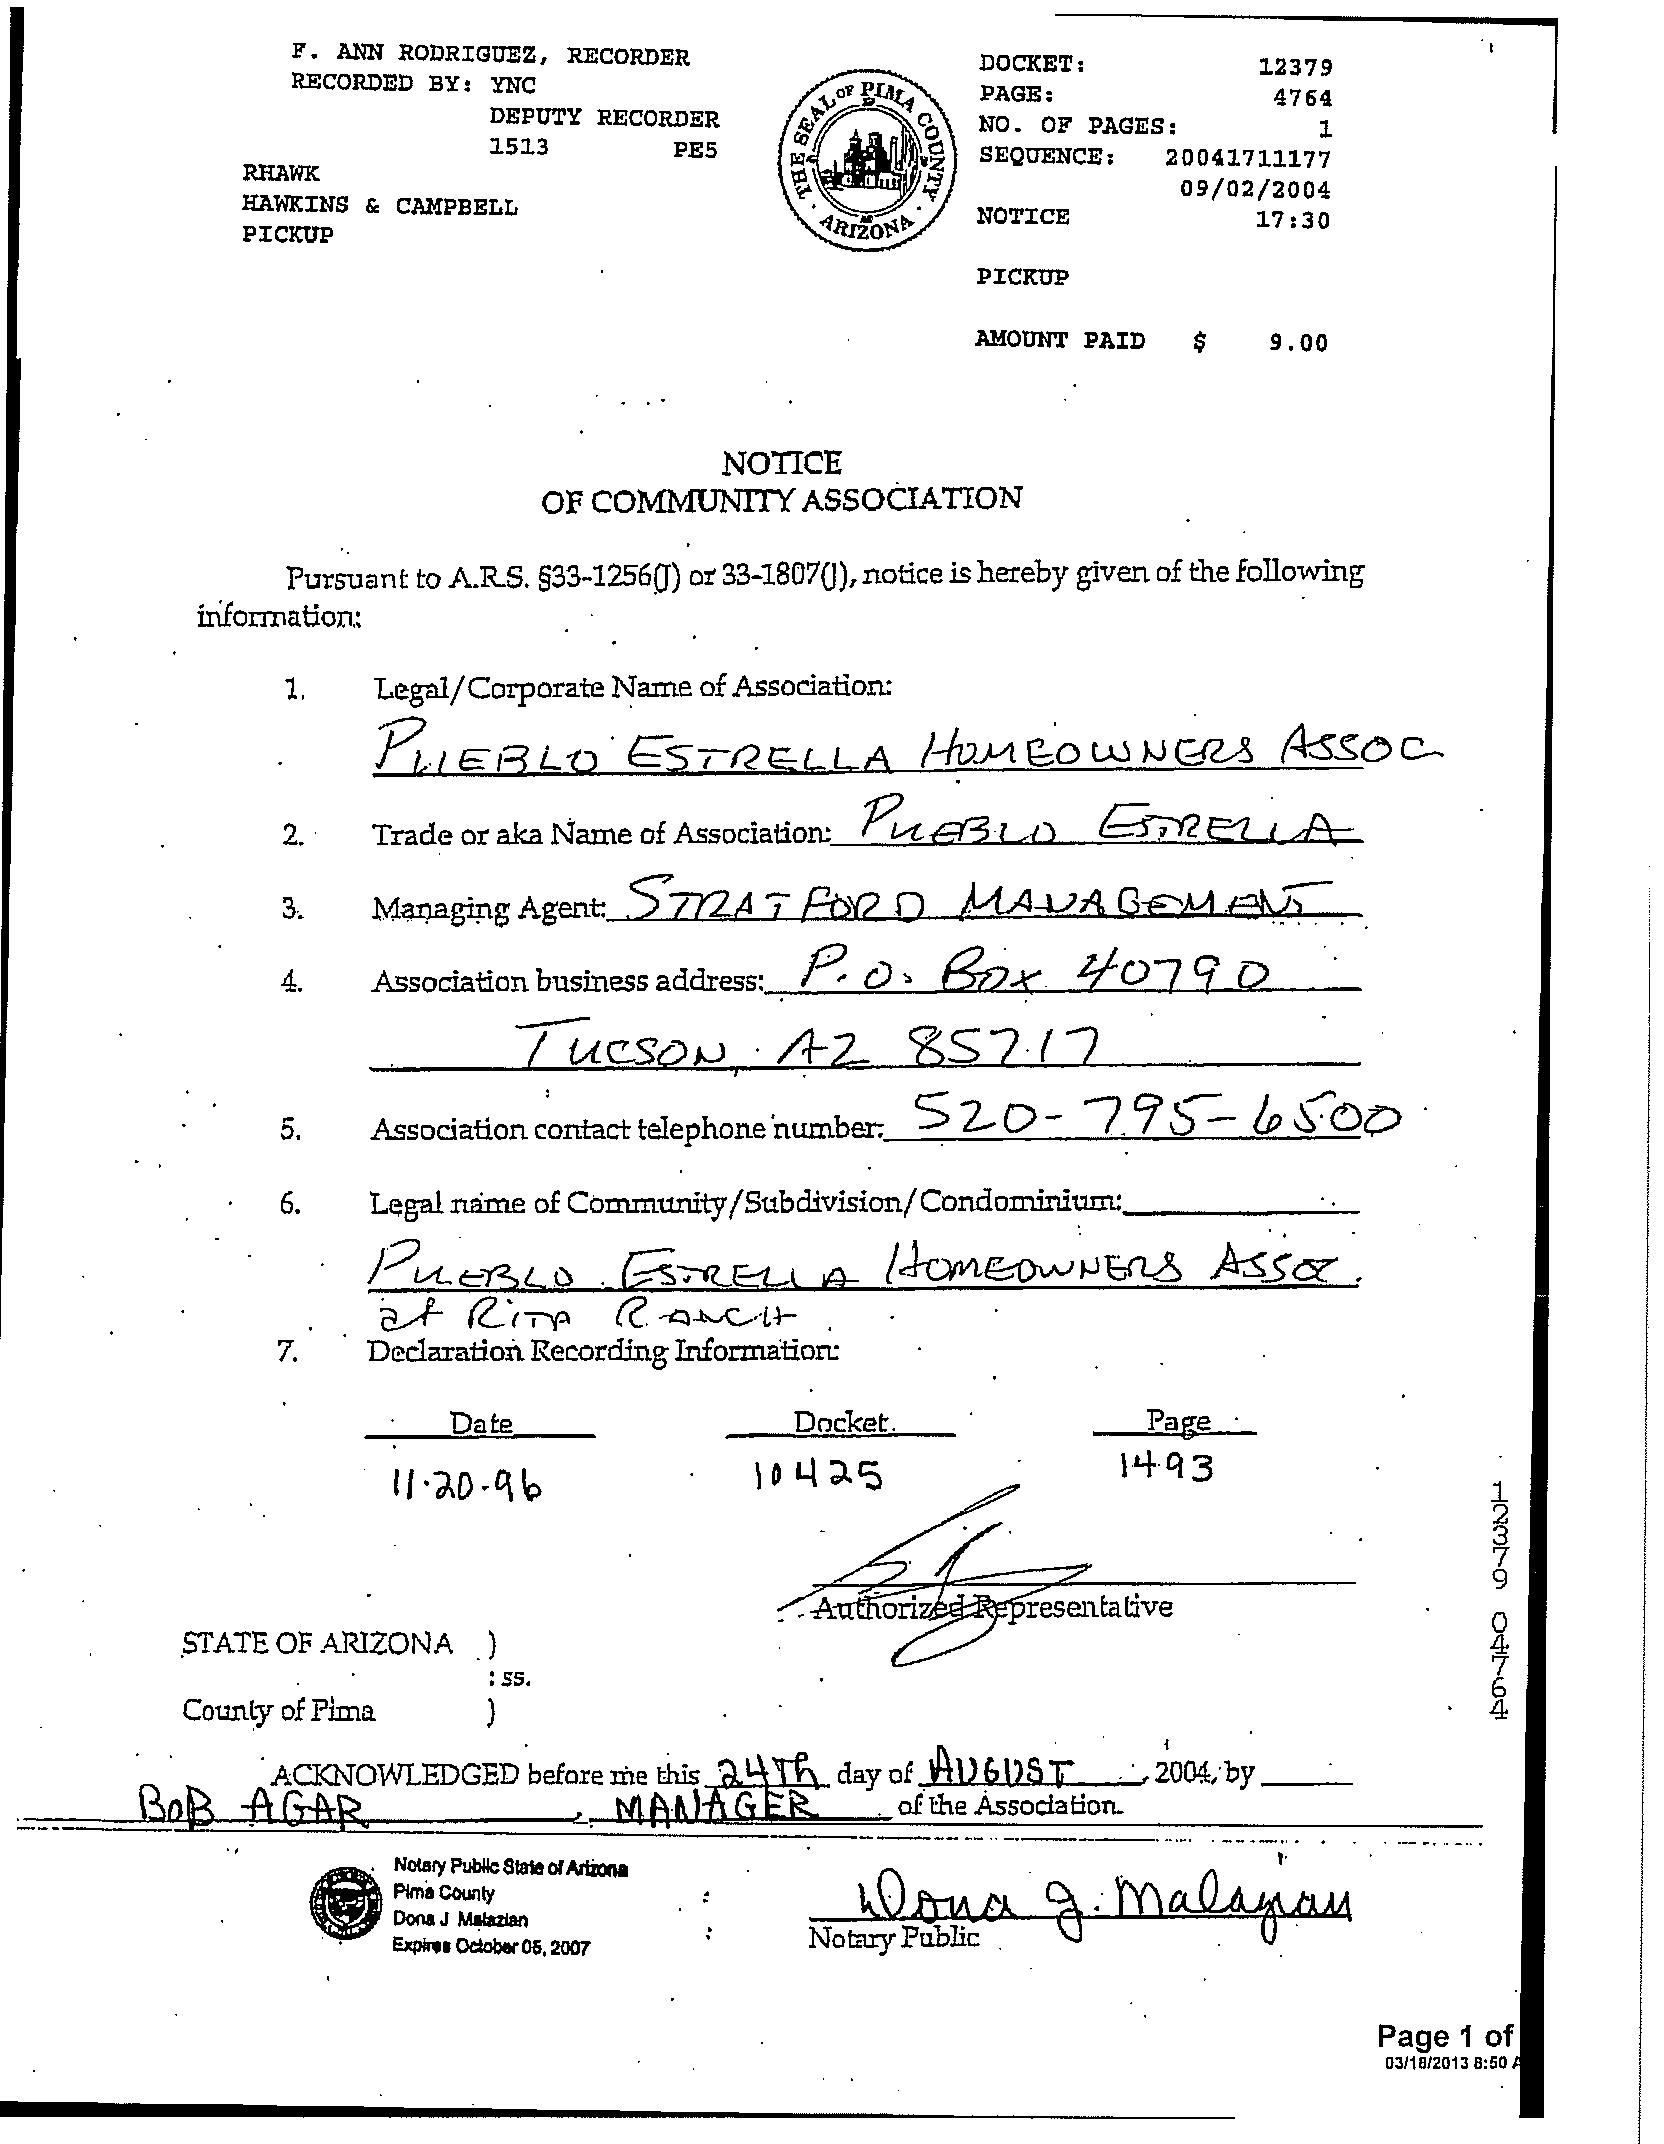 F. ANN RODRIGUEZ, RECORDER
RECORDED BY: YNC
DEPUTY RECORDER
1513 PE5
RHAWK
HAWKINS & CAMPBELL
PICKUP
THE SEAL OF PIMA COUNTY
ARIZONA
DOCKET: 12379
PAGE: 4764
NO. OF PAGES: 1
SEQUENCE: 20041711177
09/02/2004
NOTICE 17:30
PICKUP
AMOUNT PAID $ 9.00
NOTICE
OF COMMUNITY ASSOCIATION
Pursuant to A.R.S. §33-1256(J) or 33-1807(J), notice is hereby given of the following
information:
1. Legal/Corporate Name of Association:
PUEBLO ESTRELLA HOMEOWNERS ASSOC
2. Trade or aka Name of Association: PUEBLO ESTRELLA
3. Managing Agent: STRATFORD MANAGEMENT
4. Association business address: P.O. Box 40790
TUCSON, AZ 85717
5. Association contact telephone number: 520-795-6500
6. Legal name of Community/Subdivision/Condominium:
PUEBLO ESTRELLA HOMEOWNERS ASSOC.
at RITA RANCH
7. Declaration Recording Information:
Date Docket Page
11-20-96 10425 1493
Authorized Representative
STATE OF ARIZONA )
: ss.
County of Pima )
ACKNOWLEDGED before me this 24Th day of AUGUST, 2004, by
BOB AGAR, MANAGER of the Association.
Notary Public State of Arizona
Pima County
Dona J Malazian
Expires October 05, 2007
Dona J. Malazian
Notary Public
12379 04764
Page 1 of
03/18/2013 8:50 A